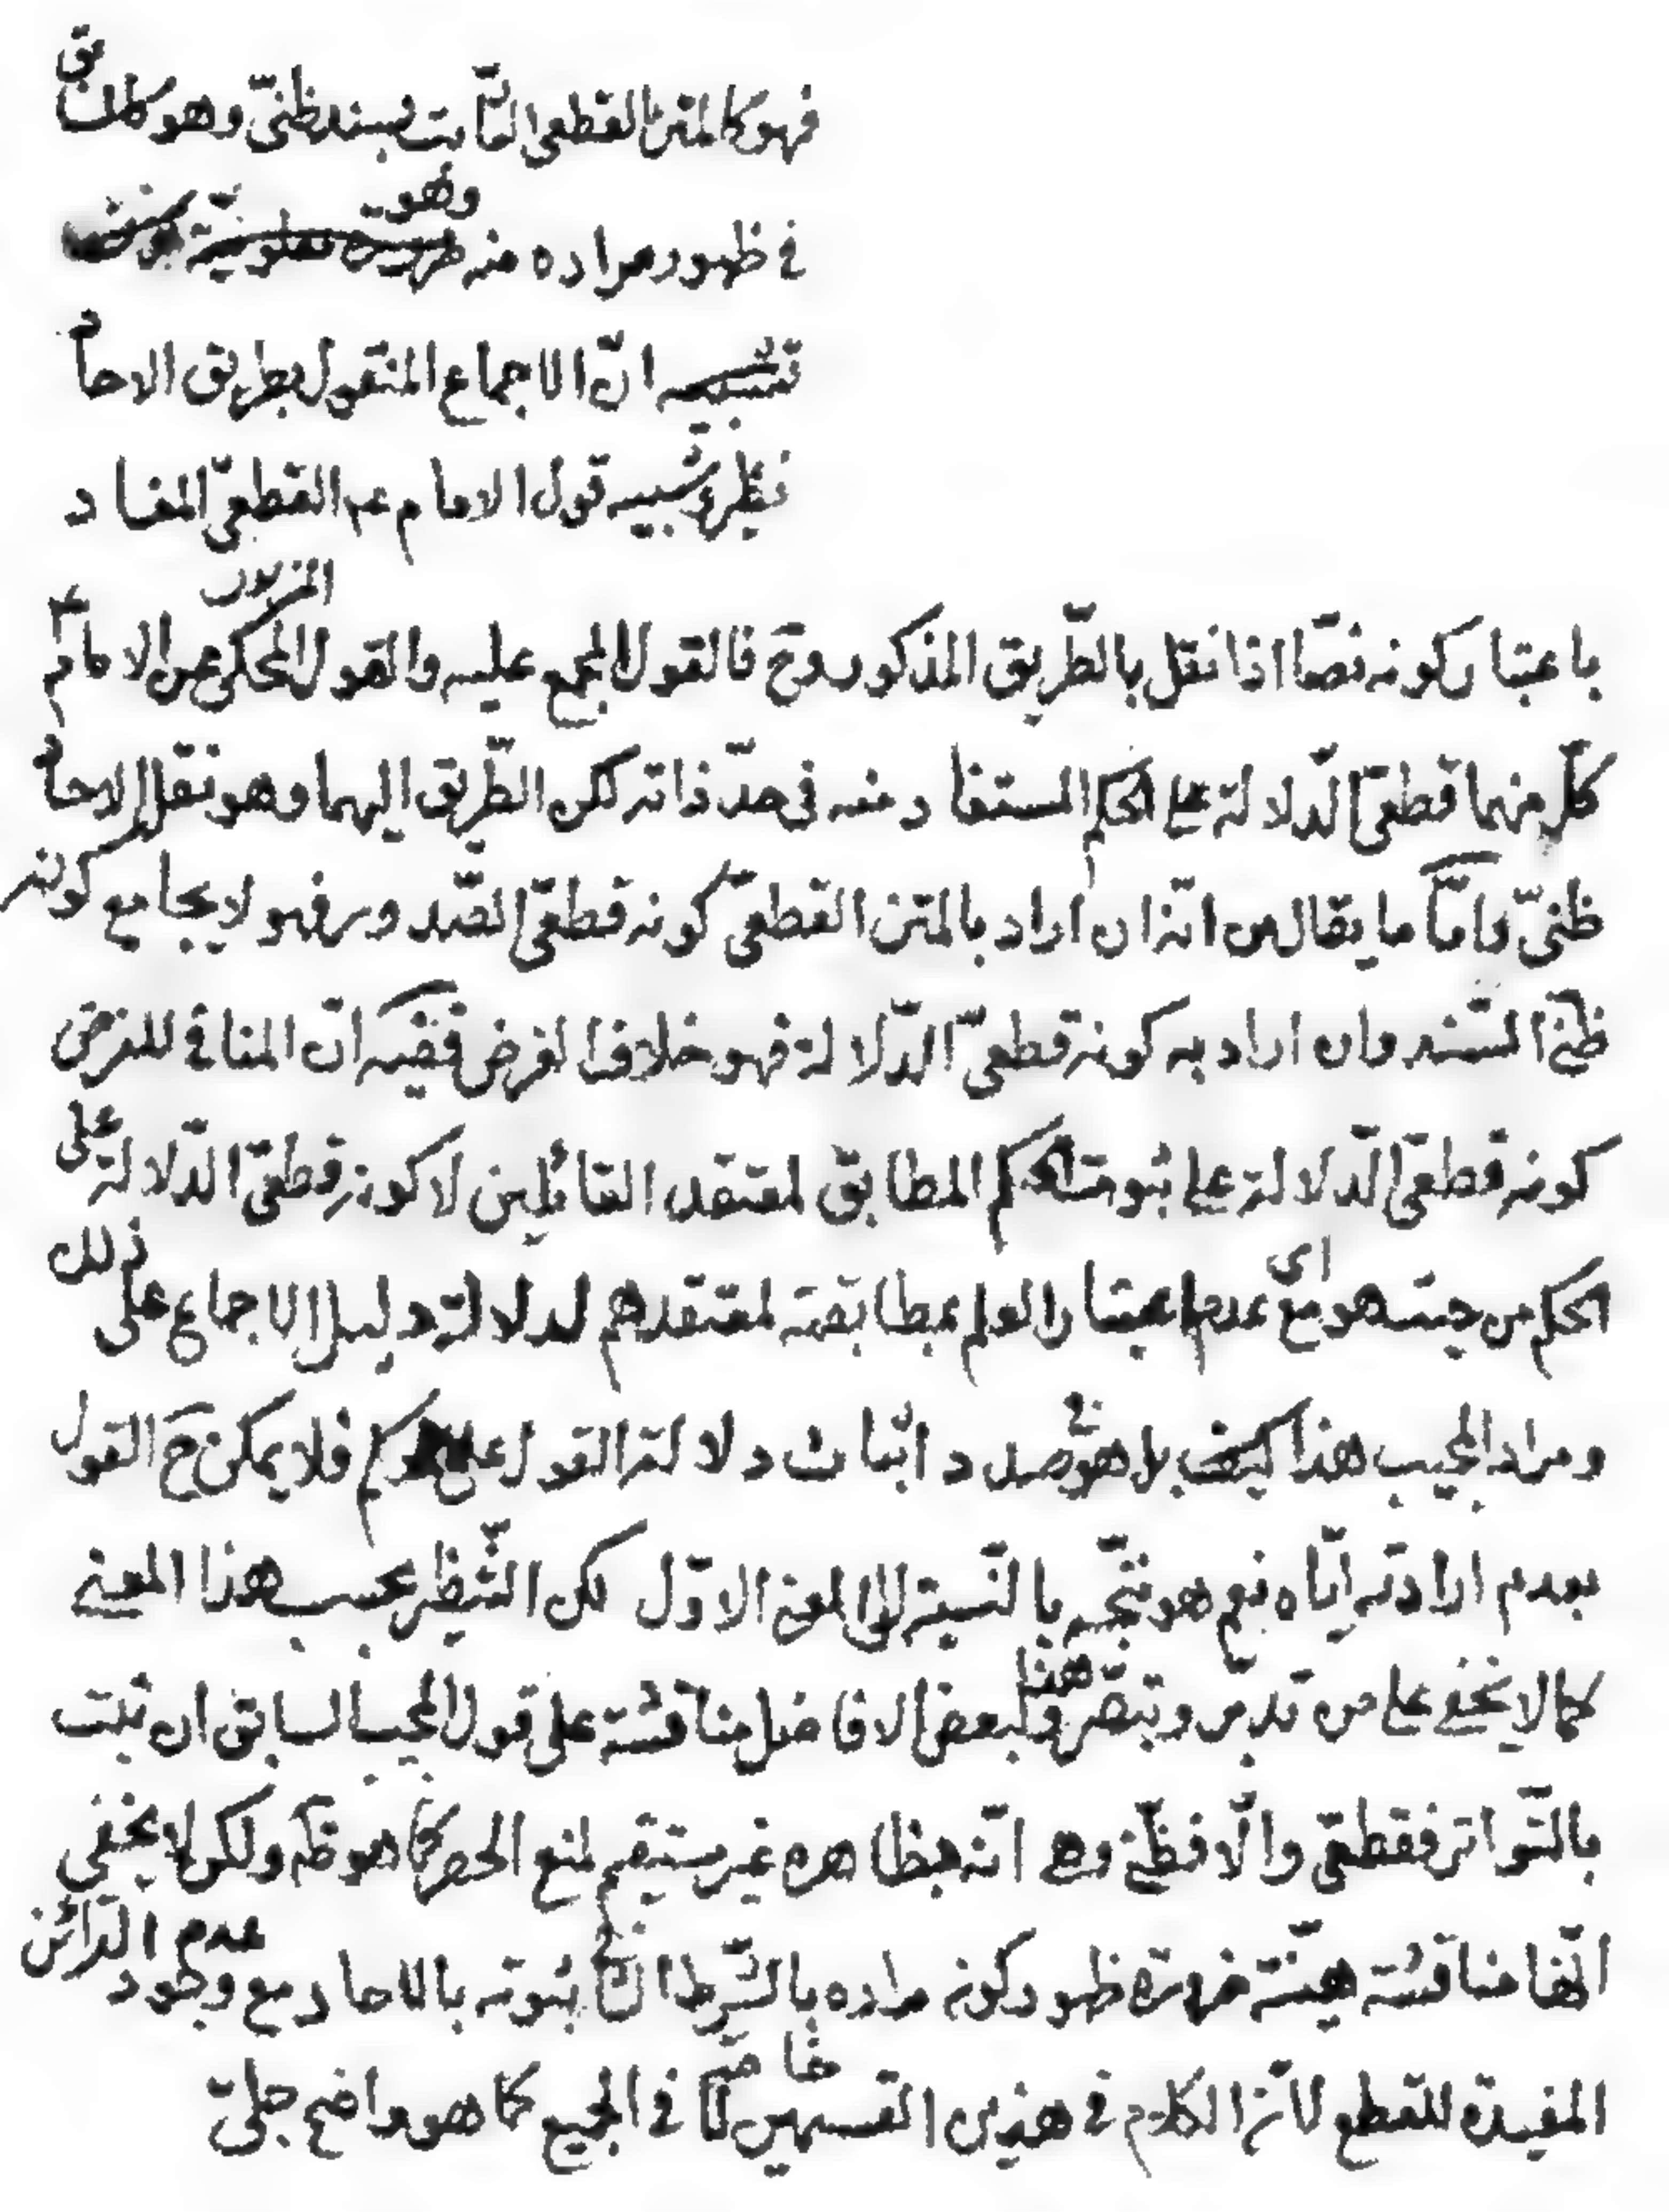 فهو كالمتن القطعي الثابت بسند ظنيّ وهو كما تق
في ظهور مراده منه وهو
تشبيه انّ الاجماع المنقول بطريق الاحاد
نظير وشبيه قول الامام عم القطعيّ المفاد
باعتبار كونه نصّا اذا نقل بالطّريق المذكور وح فالقول المجمع عليه والقول المحكي المزبور عن الامام ع
كلّ منهما قطعيّ الدّلالة على الحكم المستفاد منه في حدّ ذاته لكن الطّريق اليهما وهو نقل الاحاد
ظنيّ وامّا ما يقال من انّه ان اراد بالمتن القطعيّ كونه قطعيّ الصّدور فهو لا يجامع كونه
ظنيّ السّند وان اراد به كونه قطعيّ الدّلالة فهو خلاف الفرض ففيه انّ المنافي للفرض
كونه قطعيّ الدّلالة على ثبوت الحكم المطابق لمعتقد القائلين لا كونه قطعيّ الدّلالة على
الحكم من حيث هو اى مع عدم اعتبار العلم بمطابقته لمعتقدهم لدلالة دليل الاجماع على ذلك
ومراد المجيب هذا كيف بل هو في صدد اثبات دلالة القول على فلا يمكن ح القول
بعدم ارادته ايّاه نعم هو متّجه بالنّسبة الى المعنى الاوّل لكن التّنظير بحسب هذا المعنى
كما لا يخفى على من تدبّر وتبصّر هذا ولبعض الافاضل مناقشة على قول المجيب السابق ان ثبت
بالتّواتر فقطعيّ والّا فظنّي وهى انّه بظاهره غير مستقيم لمنع الحصر كما هو ظّ ولكن لا يخفى
انّها مناقشة هيّنة ضرورة ظهور كونه مراده بالشّرط الثاني ثبوته بالاحاد مع وجود عدم القرائن
المفيدة للقطع لانّ الكلام في هذين القسمين خاصّة لا في الجميع كما هو واضح جليّ